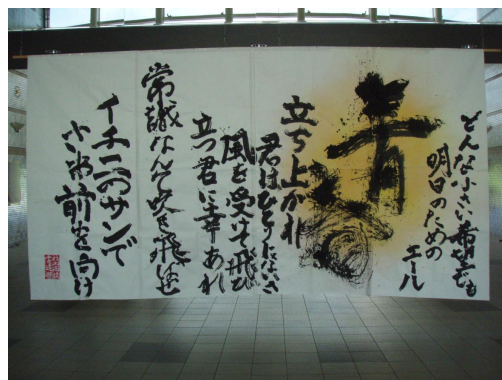 どんな小さい希望でも
明日のための
エール
青春
立ち上がれ
君はひとり
風を受けて飛び
立つ君に幸あれ
常識なんて吹き飛ばせ
イチニのサンで
前を向け